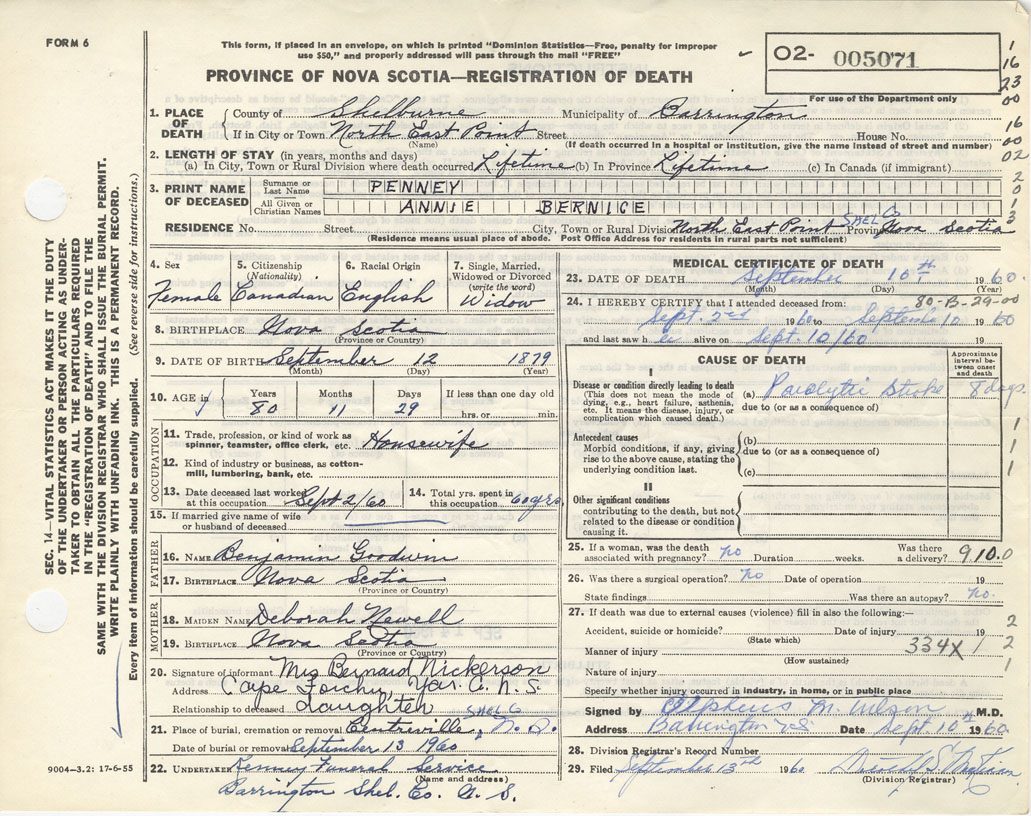 FORM 6
This form, if placed in an envelope, on which is printed "Dominion Statistics—Free, penalty for improper
use $50," and properly addressed will pass through the mail "FREE"
PROVINCE OF NOVA SCOTIA—REGISTRATION OF DEATH
02- 005071
For use of the Department only
1
16
23
00
16
00
02
2
0
1
3
1. PLACE OF DEATH County of Shelburne Municipality of Barrington
If in City or Town North East Point Street House No.
(Name) (If death occurred in a hospital or institution, give the name instead of street and number)
2. LENGTH OF STAY (in years, months and days)
(a) In City, Town or Rural Division where death occurred Lifetime (b) In Province Lifetime (c) In Canada (if immigrant)
3. PRINT NAME OF DECEASED Surname or Last Name PENNEY
All Given or Christian Names ANNIE BERNICE
RESIDENCE No. Street City, Town or Rural Division North East Point Shel Co Province Nova Scotia
(Residence means usual place of abode. Post Office Address for residents in rural parts not sufficient)
SEC. 14—VITAL STATISTICS ACT MAKES IT THE DUTY
OF THE UNDERTAKER OR PERSON ACTING AS UNDER-
TAKER TO OBTAIN ALL THE PARTICULARS REQUIRED
IN THE "REGISTRATION OF DEATH" AND TO FILE THE
SAME WITH THE DIVISION REGISTRAR WHO SHALL ISSUE THE BURIAL PERMIT.
WRITE PLAINLY WITH UNFADING INK. THIS IS A PERMANENT RECORD.
Every item of information should be carefully supplied. (See reverse side for instructions.)
4. Sex Female
5. Citizenship (Nationality) Canadian
6. Racial Origin English
7. Single, Married, Widowed or Divorced (write the word) Widow
8. BIRTHPLACE Nova Scotia
(Province or Country)
9. DATE OF BIRTH September 12 1879
(Month) (Day) (Year)
10. AGE in Years 80 Months 11 Days 29 If less than one day old hrs. or min.
OCCUPATION
11. Trade, profession, or kind of work as spinner, teamster, office clerk, etc. Housewife
12. Kind of industry or business, as cotton-mill, lumbering, bank, etc.
13. Date deceased last worked at this occupation Sept 2/60 14. Total yrs. spent in this occupation 60 yrs
15. If married give name of wife or husband of deceased
FATHER
16. NAME Benjamin Goodwin
17. BIRTHPLACE Nova Scotia
(Province or Country)
MOTHER
18. MAIDEN NAME Deborah Newell
19. BIRTHPLACE Nova Scotia
(Province or Country)
20. Signature of informant Mrs Bernard Nickerson
Address Cape Forchu, Yar. Co. N. S.
Relationship to deceased Daughter
21. Place of burial, cremation or removal Centreville, Shel Co N. S.
Date of burial or removal September 13 1960
22. UNDERTAKER Kenney Funeral Service
(Name and address)
Barrington Shel. Co. N. S.
9004—3.2: 17-6-55
MEDICAL CERTIFICATE OF DEATH
23. DATE OF DEATH September 10th 1960
(Month) (Day) (Year)
80-B-29-00
24. I HEREBY CERTIFY that I attended deceased from:
Sept. 2nd 1960 to September 10 1960
and last saw h er alive on Sept. 10/60
CAUSE OF DEATH
Approximate interval between onset and death
I
Disease or condition directly leading to death (This does not mean the mode of dying, e.g., heart failure, asthenia, etc. It means the disease, injury, or complication which caused death.)
(a) Paralytic Stroke 8 days.
due to (or as a consequence of)
Antecedent causes
Morbid conditions, if any, giving rise to the above cause, stating the underlying condition last.
(b)
due to (or as a consequence of)
(c)
II
Other significant conditions contributing to the death, but not related to the disease or condition causing it.
1
1
1
25. If a woman, was the death associated with pregnancy? no Duration weeks. Was there a delivery? 910.0
26. Was there a surgical operation? no Date of operation 19
State findings Was there an autopsy? no.
27. If death was due to external causes (violence) fill in also the following:—
Accident, suicide or homicide? Date of injury 19 2
(State which)
Manner of injury 334X 1 2
(How sustained)
Nature of injury 1
Specify whether injury occurred in industry, in home, or in public place
Signed by Alpheus M. Wilson M.D.
Address Barrington N.S. Date Sept. 10th 1960
28. Division Registrar's Record Number
29. Filed September 13th 1960
(Division Registrar)